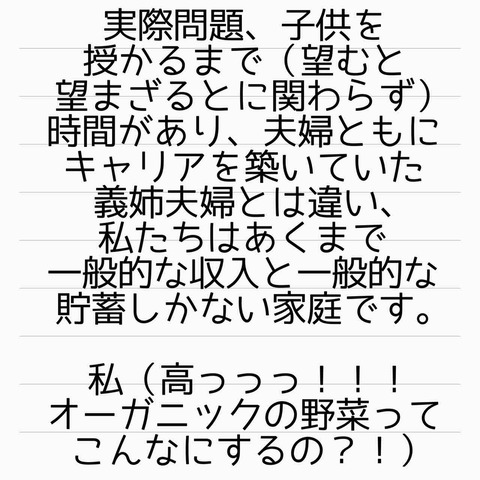 実際問題、子供を
授かるまで（望むと
望まざるとに関わらず）
時間があり、夫婦ともに
キャリアを築いていた
義姉夫婦とは違い、
私たちはあくまで
一般的な収入と一般的な
貯蓄しかない家庭です。
私（高っっっ！！！
オーガニックの野菜って
こんなにするの？！）